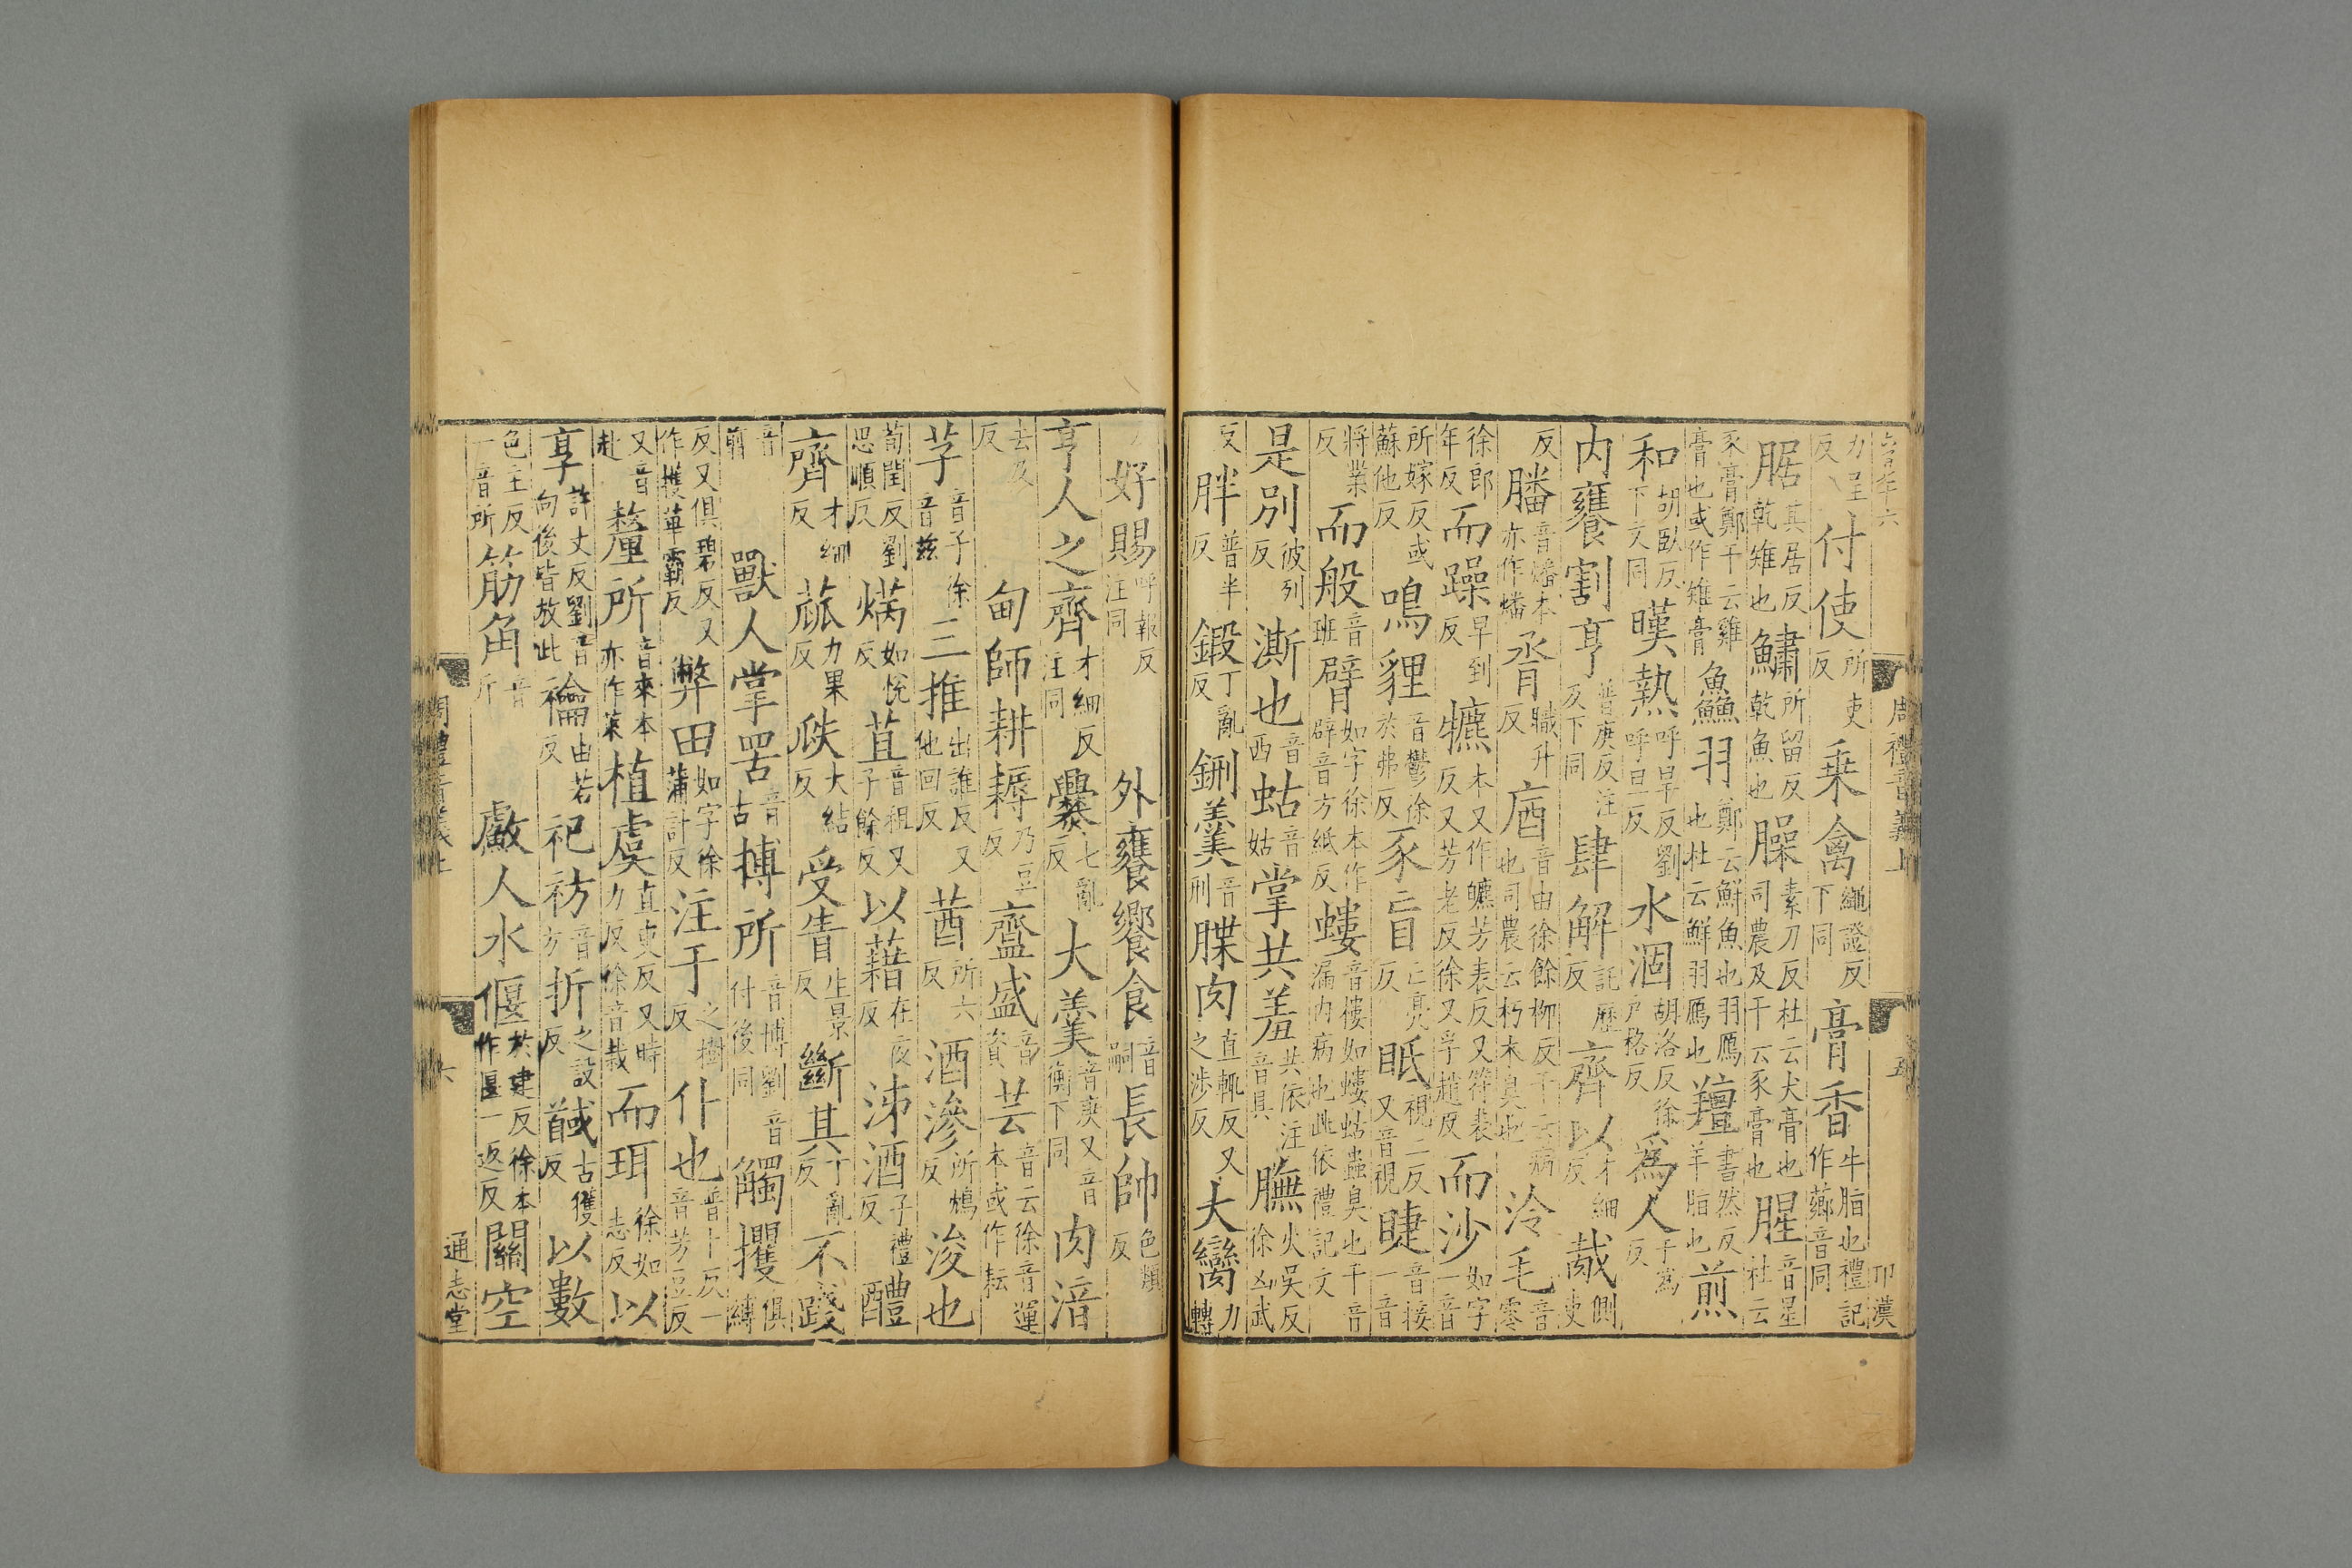 力呈反付使所吏反乘禽繩證反下同膏香牛脂也禮記作薌音同
腒其居反乾雉也鱐所留反乾魚也臊素刀反杜云犬膏也司農及干云豕膏也腥音星杜云
豕膏鄭干云雞膏也或作雉膏鱻羽鄭云鮮魚也羽鴈也杜云鮮羽鴈也羶書然反羊脂也煎
和胡臥反下文同暵熱呼旱反劉呼旦反水涸胡洛反徐戶格反為人于為反
內饔割亨普庚反注及下同肆解託歷反齊以才細反胾側吏
反膰音燔本亦作燔胥職升反庮音由徐餘柳反干云病也司農云朽木臭也泠毛音零
徐郎年反而躁早到反犥本又作皫芳表反又符表反又芳老反徐又孚趙反而沙如字一音
所嫁反或蘇他反鳴貍音鬱徐於弗反豕盲亡亮反眡視二反又音視睫音接一音
將業反而般音班臂如字徐本作辟音方紙反螻音樓如螻蛄蟲臭也干音漏內病也此依禮記文
是別彼列反澌也音西蛄音姑掌共羞共依注音具膴火吳反徐凶武
反胖普半反鍛丁亂反鉶羹音刑牒肉直輒反又之涉反大臠力轉
周禮音義上 五
好賜呼報反注同外饔饗食音嗣長帥色類反
亨人之齊才細反注同爨七亂反大羹音庚又音衡下同肉湆
去及反甸師耕耨乃豆反齍盛音資芸音云徐音運本或作耘
芓音子徐音茲三推出誰反又他回反茜所六反酒滲所鴆反浚也
荀閏反劉思順反焫如悅反苴音租又子餘反以藉在夜反泲酒子禮反醴
齊才細反蓏力果反瓞大結反受眚生景反斷其丁亂反不踐
音翦獸人掌罟音古搏所音博劉音付後同觸攫俱縛
反又俱碧反又作擭華霸反弊田如字徐蒲計反注于之樹反仆也普卜反一音芳豆反
又音赴釐所音來本亦作萊植虞直吏反又時力反徐音栽而珥徐如志反以
享許丈反劉音向後皆放此禴由若反祀祊音方折之設反馘古獲反以數
色主反一音所筋角音斤䱷人水偃於建反徐本作匽一返反關空
六 通志堂